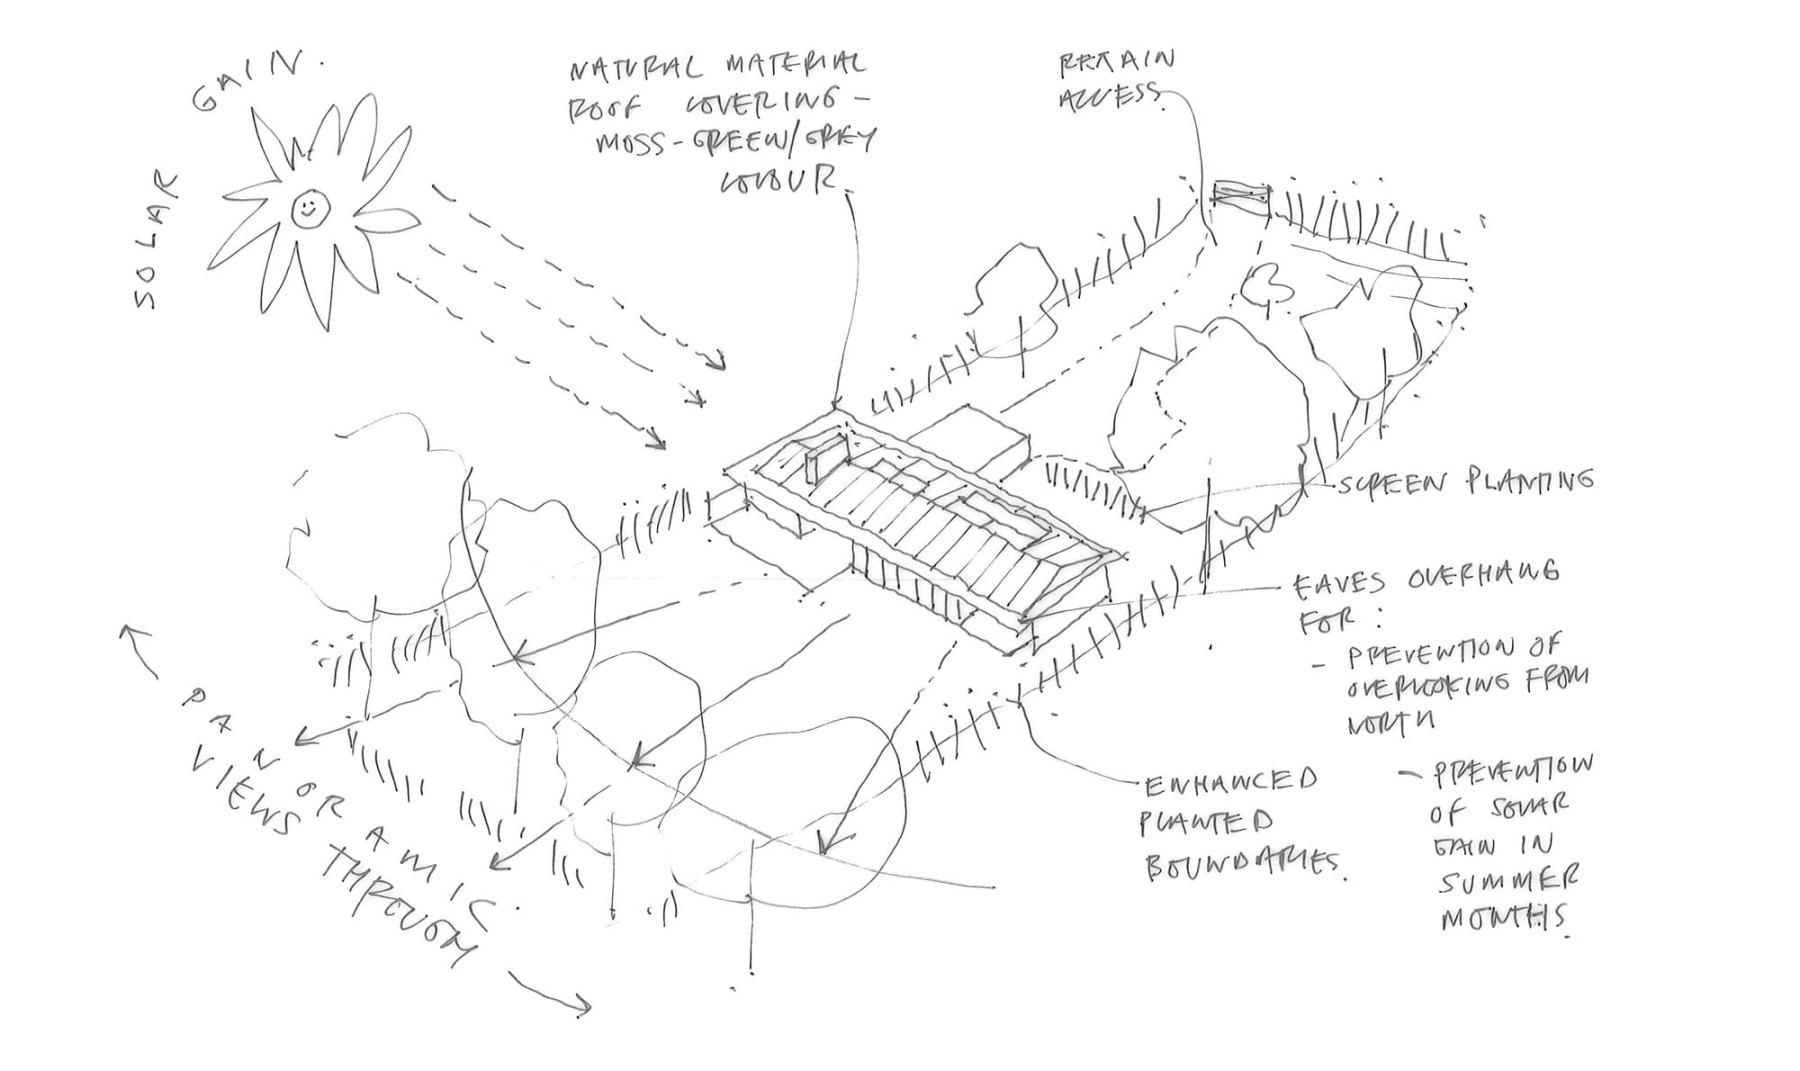 SOLAR GAIN.
NATURAL MATERIAL
ROOF COVERING -
MOSS-GREEN/GREY
COLOUR.
RETAIN
ACCESS.
SCREEN PLANTING
EAVES OVERHANG
FOR:
- PREVENTION OF
OVERLOOKING FROM
NORTH
- PREVENTION
OF SOLAR
GAIN IN
SUMMER
MONTHS.
ENHANCED
PLANTED
BOUNDARIES.
PANORAMIC.
VIEWS THROUGH